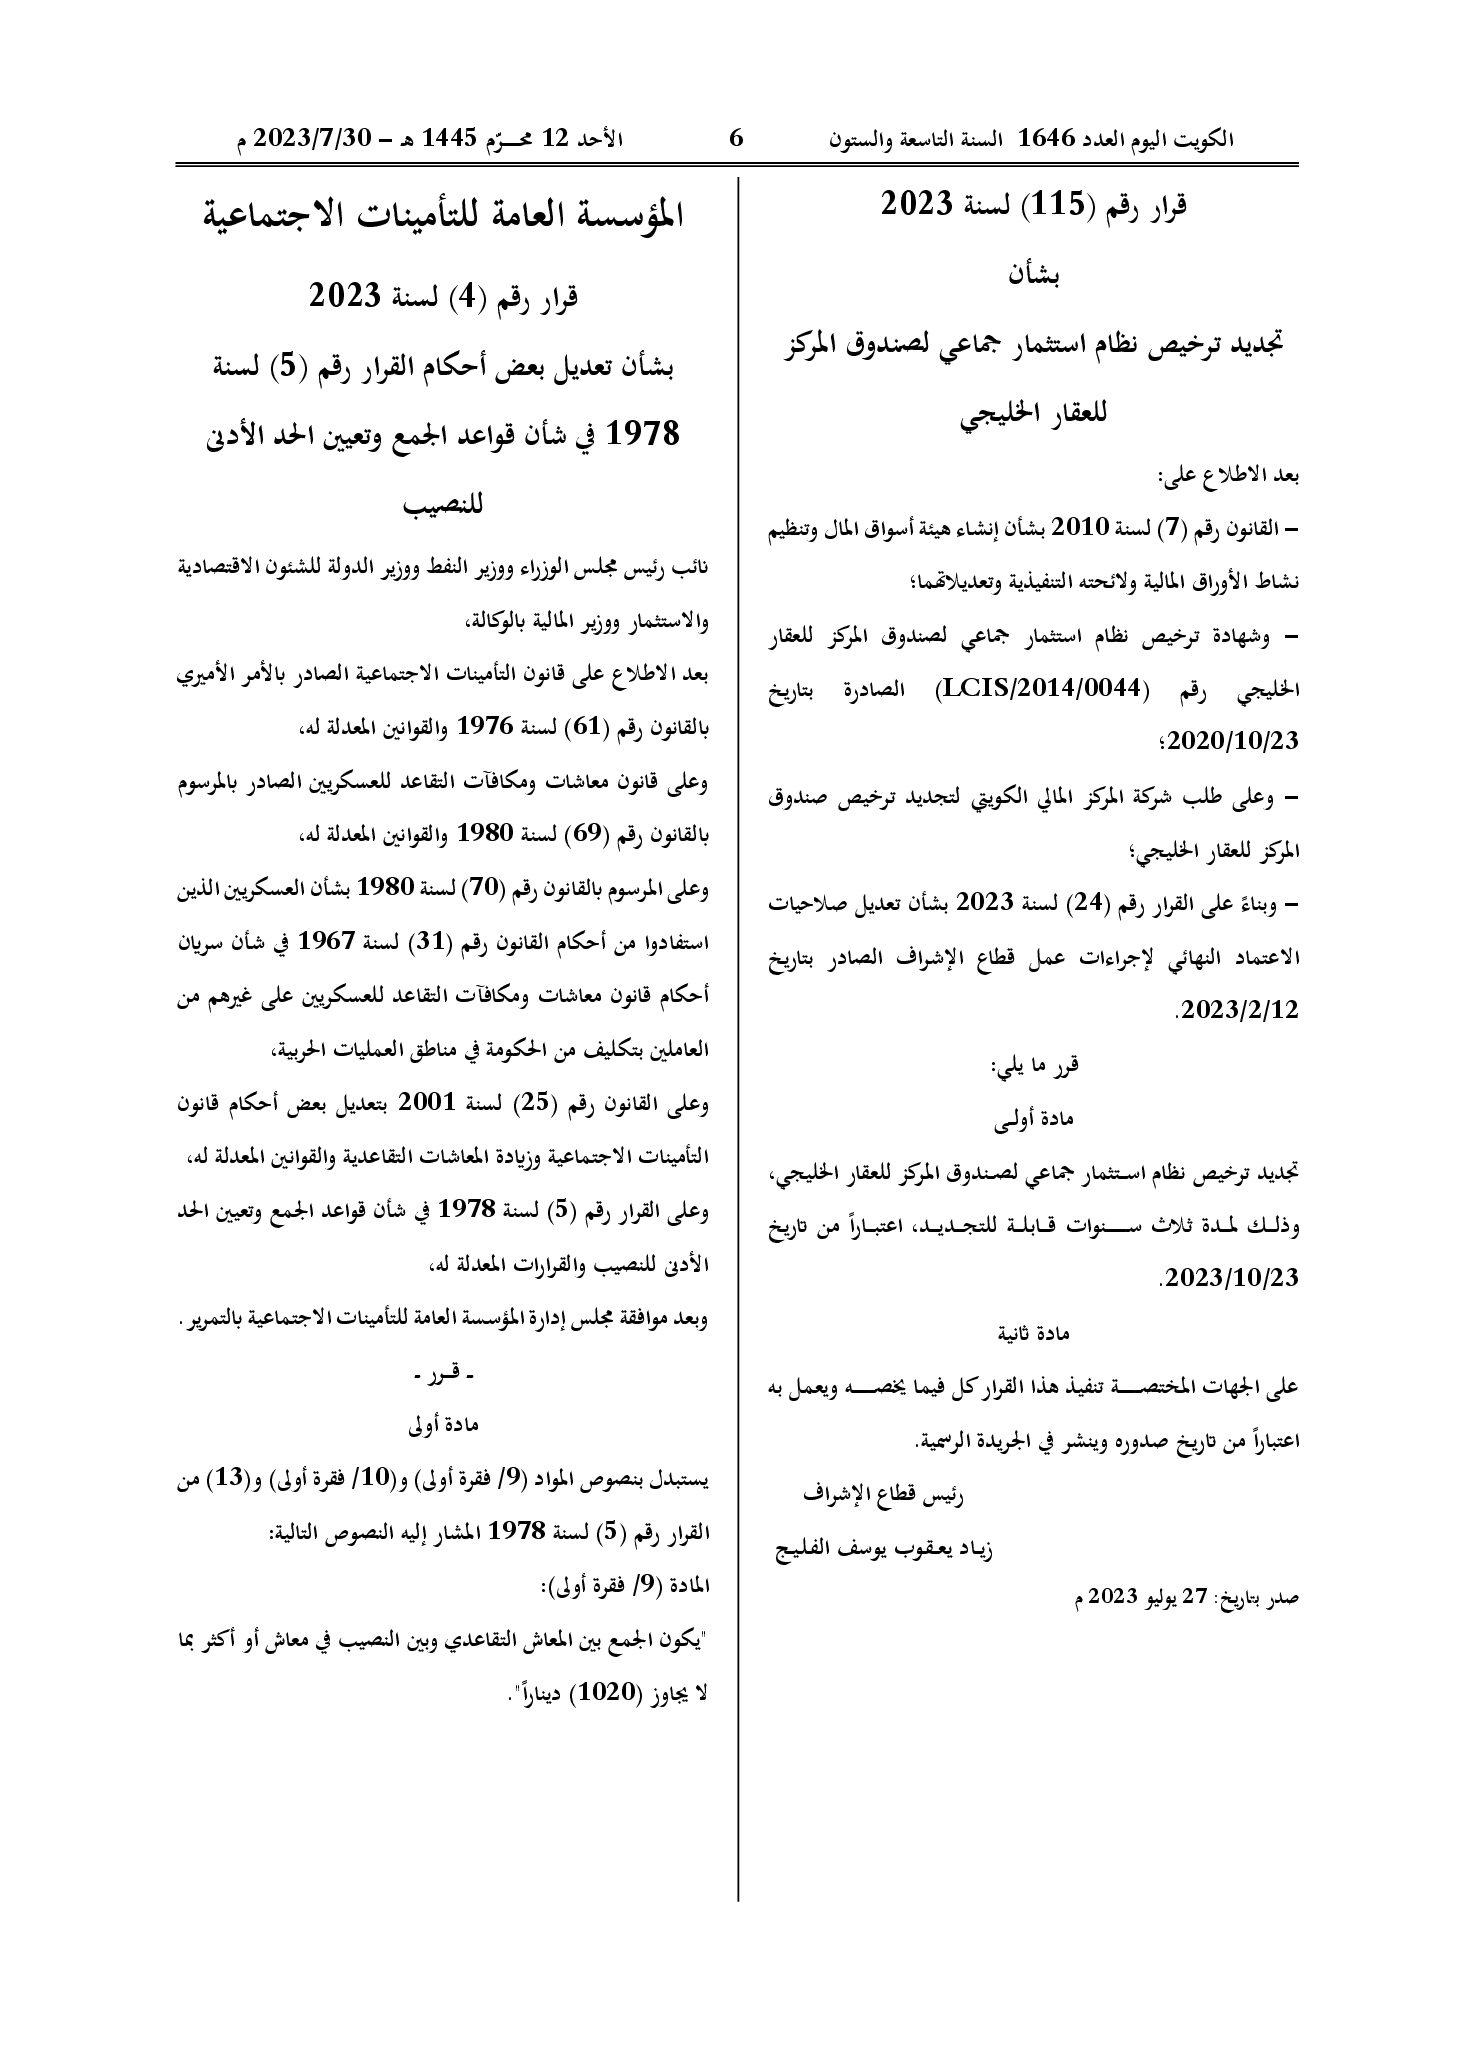 الكويت اليوم العدد 1646 السنة التاسعة والستون
6
الأحد 12 محـــرّم 1445 هـ – 2023/7/30 م
قرار رقم (115) لسنة 2023
بشأن
تجديد ترخيص نظام استثمار جماعي لصندوق المركز
للعقار الخليجي
بعد الاطلاع على:
– القانون رقم (7) لسنة 2010 بشأن إنشاء هيئة أسواق المال وتنظيم
نشاط الأوراق المالية ولائحته التنفيذية وتعديلاتهما؛
– وشهادة ترخيص نظام استثمار جماعي لصندوق المركز للعقار
الخليجي رقم (LCIS/2014/0044) الصادرة بتاريخ
2020/10/23؛
– وعلى طلب شركة المركز المالي الكويتي لتجديد ترخيص صندوق
المركز للعقار الخليجي؛
– وبناءً على القرار رقم (24) لسنة 2023 بشأن تعديل صلاحيات
الاعتماد النهائي لإجراءات عمل قطاع الإشراف الصادر بتاريخ
2023/2/12.
قرر ما يلي:
مادة أولـى
تجديد ترخيص نظام استثمار جماعي لصندوق المركز للعقار الخليجي،
وذلك لمدة ثلاث سنوات قابلة للتجديد، اعتباراً من تاريخ
2023/10/23.
مادة ثانية
على الجهات المختصة تنفيذ هذا القرار كل فيما يخصه ويعمل به
اعتباراً من تاريخ صدوره وينشر في الجريدة الرسمية.
رئيس قطاع الإشراف
زياد يعقوب يوسف الفليج
صدر بتاريخ: 27 يوليو 2023 م
المؤسسة العامة للتأمينات الاجتماعية
قرار رقم (4) لسنة 2023
بشأن تعديل بعض أحكام القرار رقم (5) لسنة
1978 في شأن قواعد الجمع وتعيين الحد الأدنى
للنصيب
نائب رئيس مجلس الوزراء ووزير النفط ووزير الدولة للشئون الاقتصادية
والاستثمار ووزير المالية بالوكالة،
بعد الاطلاع على قانون التأمينات الاجتماعية الصادر بالأمر الأميري
بالقانون رقم (61) لسنة 1976 والقوانين المعدلة له،
وعلى قانون معاشات ومكافآت التقاعد للعسكريين الصادر بالمرسوم
بالقانون رقم (69) لسنة 1980 والقوانين المعدلة له،
وعلى المرسوم بالقانون رقم (70) لسنة 1980 بشأن العسكريين الذين
استفادوا من أحكام القانون رقم (31) لسنة 1967 في شأن سريان
أحكام قانون معاشات ومكافآت التقاعد للعسكريين على غيرهم من
العاملين بتكليف من الحكومة في مناطق العمليات الحربية،
وعلى القانون رقم (25) لسنة 2001 بتعديل بعض أحكام قانون
التأمينات الاجتماعية وزيادة المعاشات التقاعدية والقوانين المعدلة له،
وعلى القرار رقم (5) لسنة 1978 في شأن قواعد الجمع وتعيين الحد
الأدنى للنصيب والقرارات المعدلة له،
وبعد موافقة مجلس إدارة المؤسسة العامة للتأمينات الاجتماعية بالتمرير .
ـ قـرر ـ
مادة أولى
يستبدل بنصوص المواد (9/ فقرة أولى) و(10/ فقرة أولى) و(13) من
القرار رقم (5) لسنة 1978 المشار إليه النصوص التالية:
المادة (9/ فقرة أولى):
"يكون الجمع بين المعاش التقاعدي وبين النصيب في معاش أو أكثر بما
لا يجاوز (1020) ديناراً".